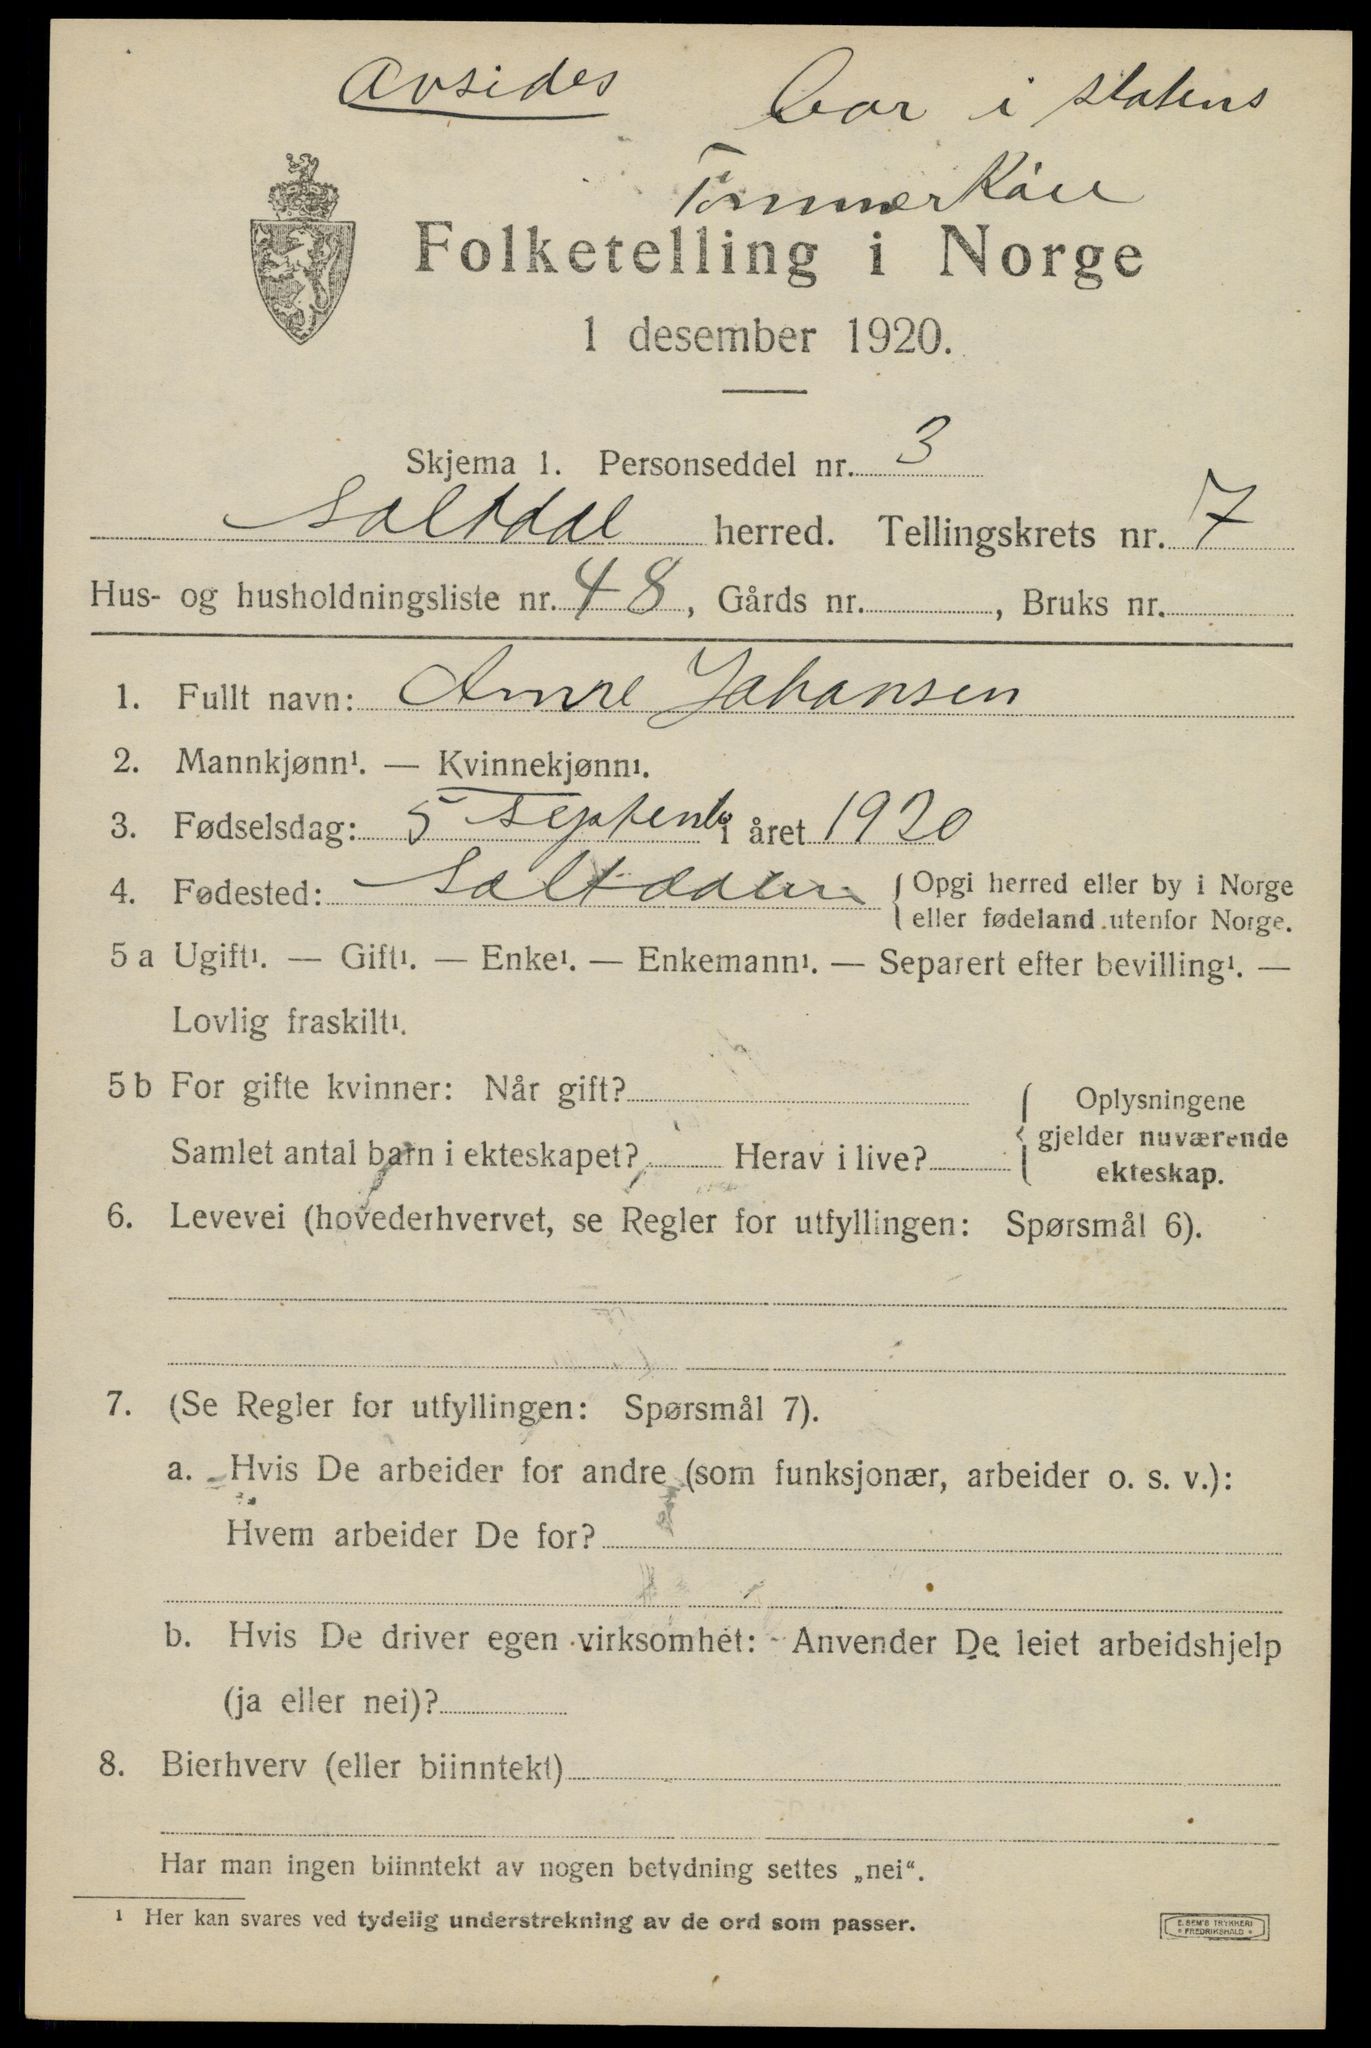 Avsides
bor i statens
Tømmerkåie
Folketelling i Norge
1 desember 1920.
Skjema 1. Personseddel nr. 3
Saltdal herred. Tellingskrets nr. 7
Hus- og husholdningsliste nr. 48, Gårds nr. , Bruks nr.
1. Fullt navn: Johansen
2. Mannkjønn¹. — Kvinnekjønn¹.
3. Fødselsdag: 5 Septemb i året 1920
4. Fødested: Saltdalen { Opgi herred eller by i Norge
eller fødeland utenfor Norge.
5 a Ugift¹. — Gift¹. — Enke¹. — Enkemann¹. — Separert efter bevilling¹. —
Lovlig fraskilt¹.
5 b For gifte kvinner: Når gift? { Oplysningene
gjelder nuværende
Samlet antal barn i ekteskapet? Herav i live?
ekteskap.
6. Levevei (hovederhvervet, se Regler for utfyllingen: Spørsmål 6).
7. (Se Regler for utfyllingen: Spørsmål 7).
a. Hvis De arbeider for andre (som funksjonær, arbeider o. s. v.):
Hvem arbeider De for?
b. Hvis De driver egen virksomhet: Anvender De leiet arbeidshjelp
(ja eller nei)?
8. Bierhverv (eller biinntekt)
Har man ingen biinntekt av nogen betydning settes „nei“.
¹ Her kan svares ved tydelig understrekning av de ord som passer.
E. SEM'S TRYKKERI
FREDRIKSHALD